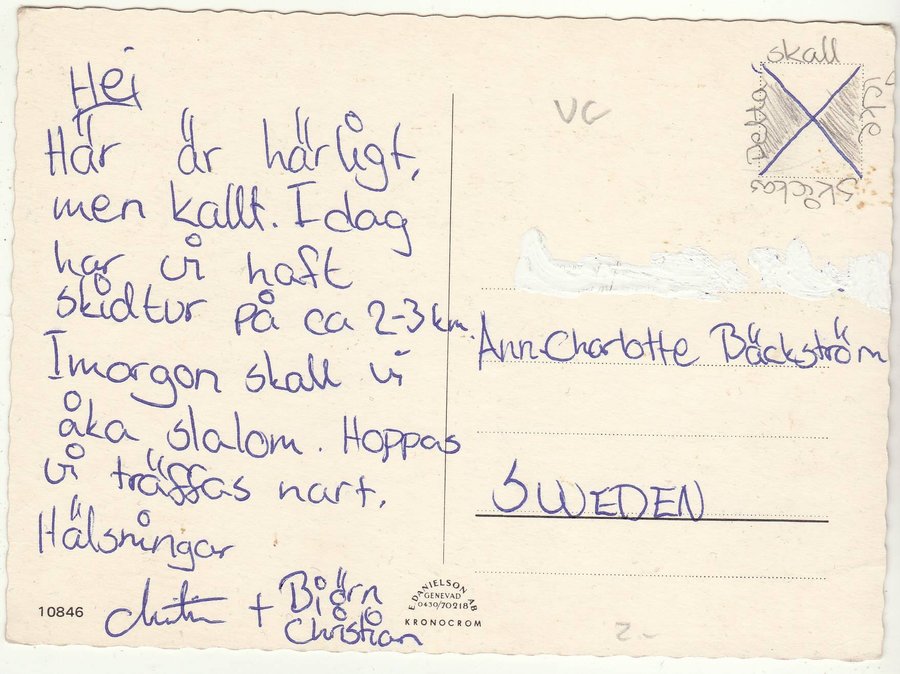 Hei
Här är härligt,
men kallt. I dag
har vi haft
skidtur på ca 2-3 km.
Imorgon skall vi
åka slalom. Hoppas
vi träffas nart.
Hälsningar
+ Björn
Christian
10846
E. DANIELSON AB
GENEVAD
0430/70218
KRONOCROM
VC
skall
icke
skickas
Detta
Ann-Charlotte Bäckström
SWEDEN
2-